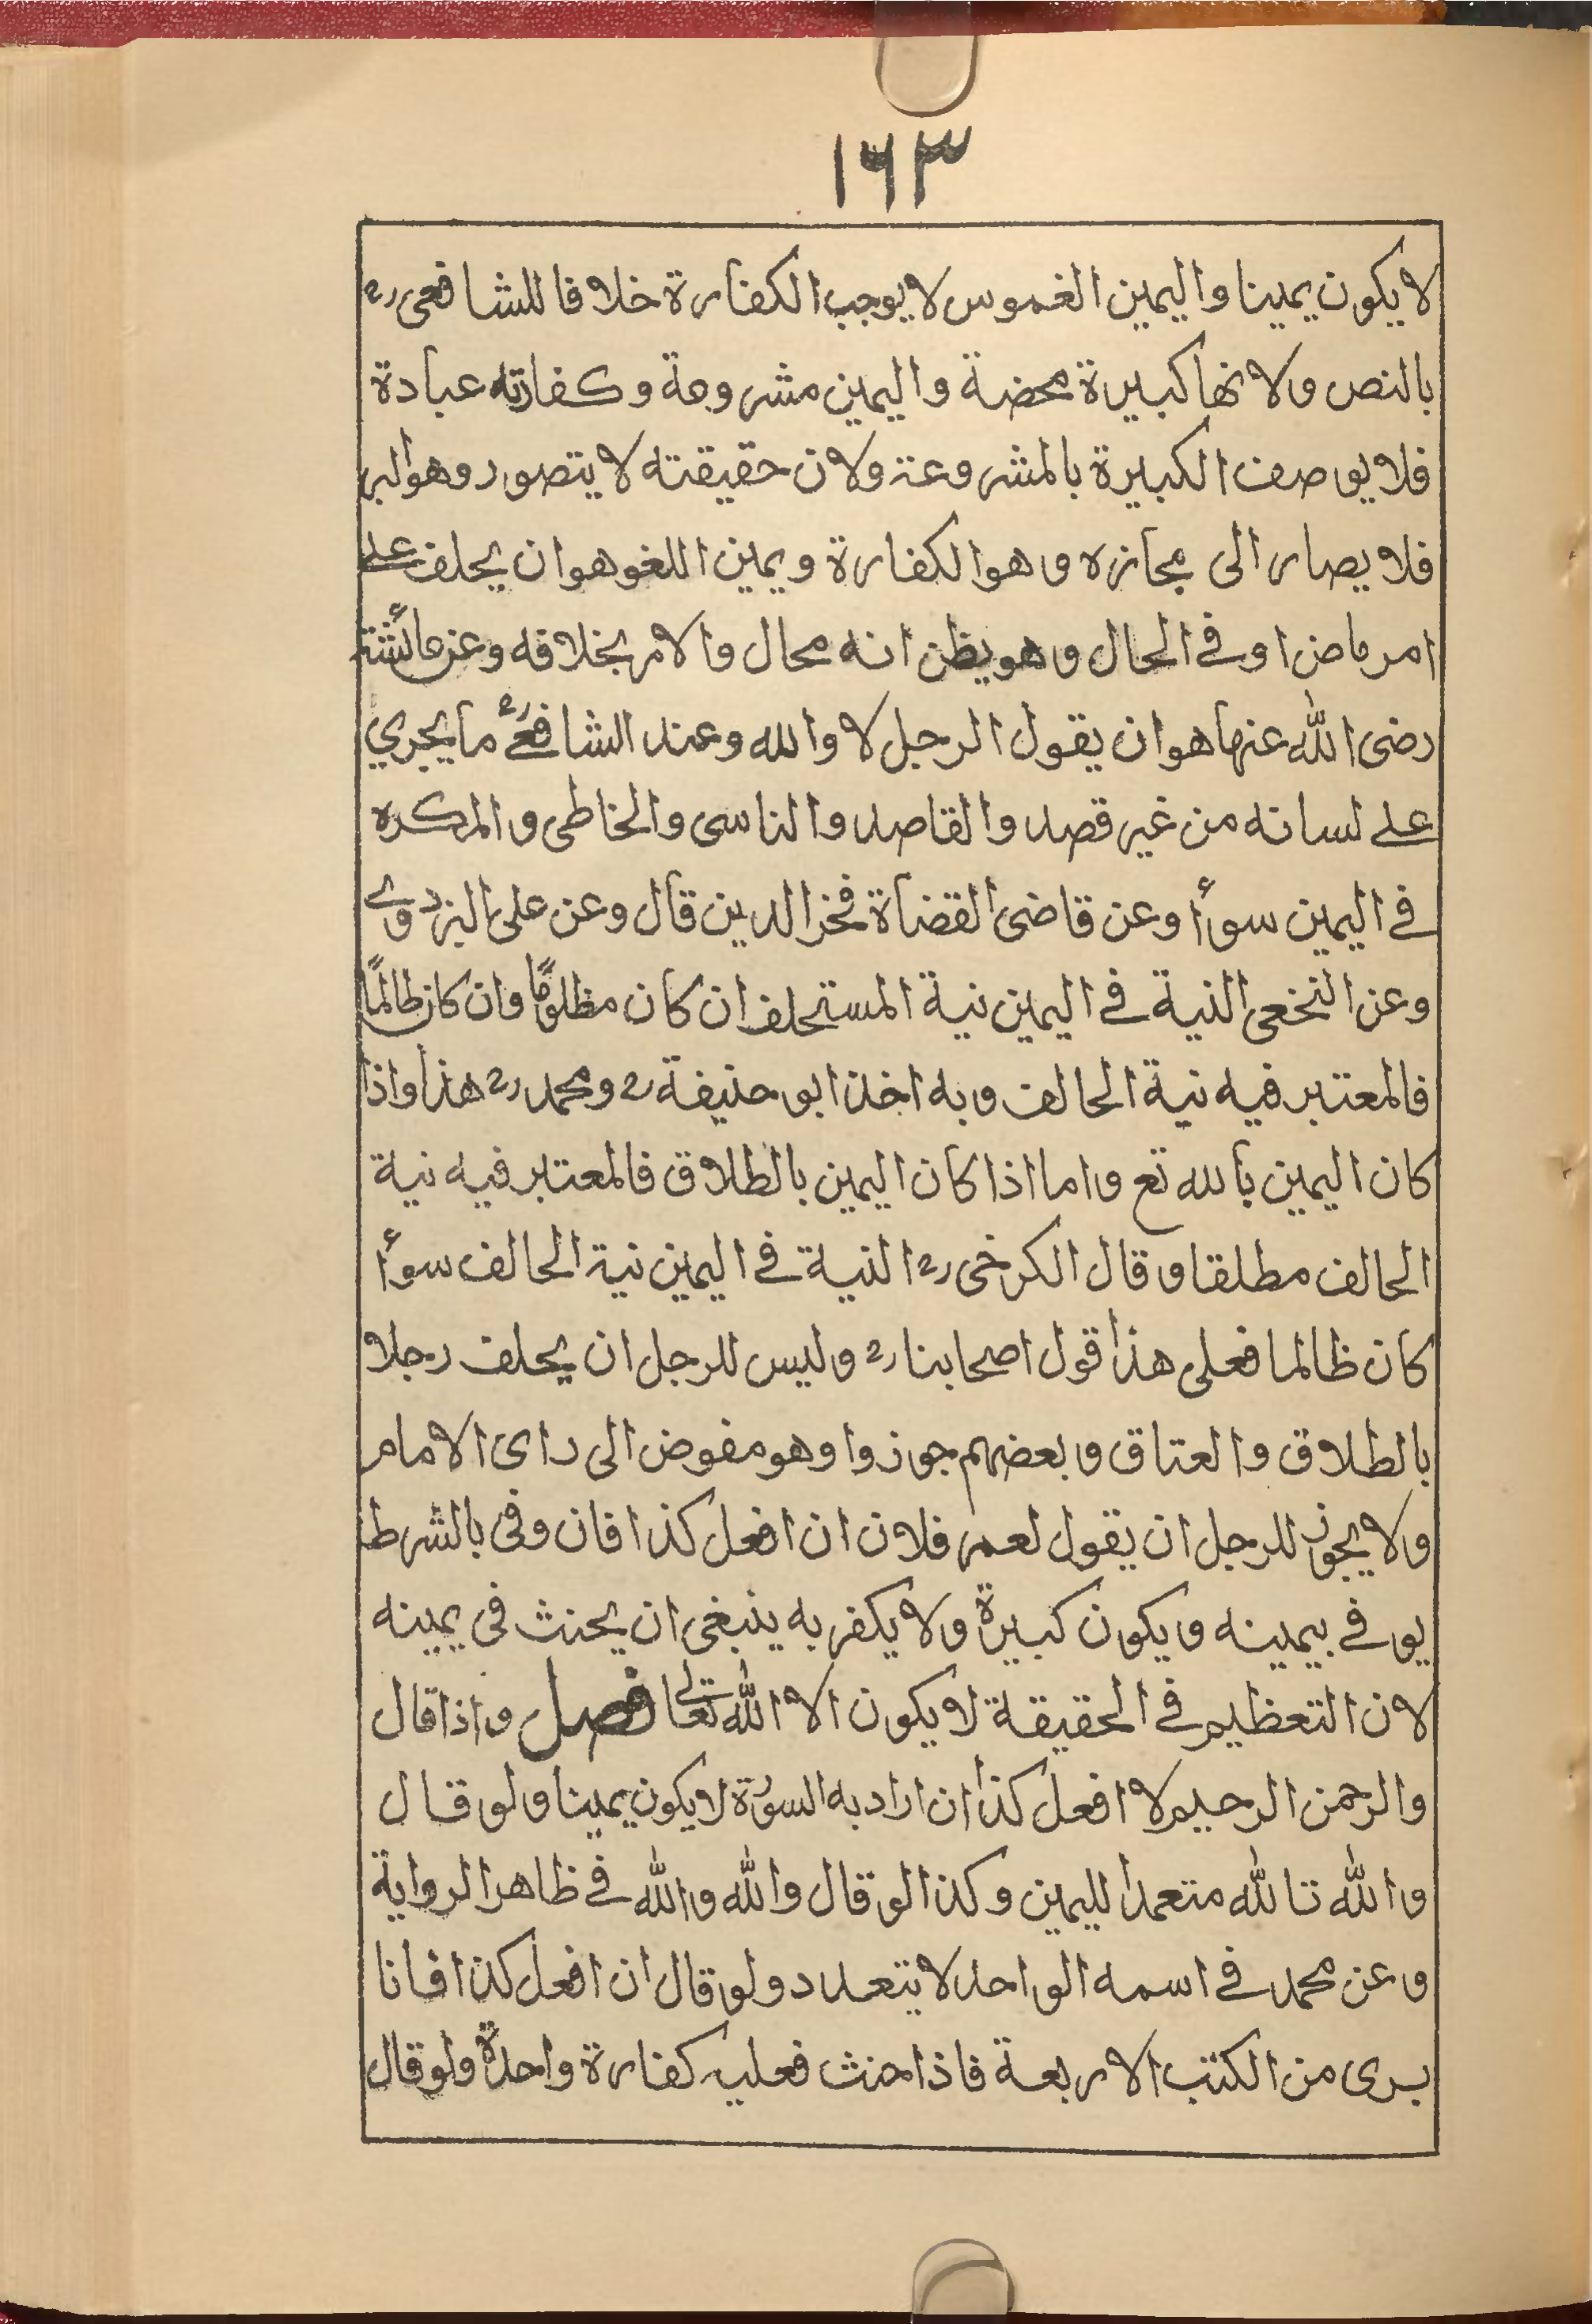 ١٦٣
لا يكون يمينا واليمين الغموس لا يوجب الكفارة خلافا للشافعى رح
بالنص ولانها كبيرة محضة واليمين مشروعة وكفارته عبادة
فلا يوصف الكبيرة بالمشروعة ولان حقيقته لا يتصور وهو البر
فلا يصار الى مجازه وهو الكفارة ويمين اللغو هو ان يحلف على
امر ماض او فى الحال وهو يظن انه محال والامر بخلافه وعن عائشة
رضى الله عنها هو ان يقول الرجل لا والله وعند الشافعى رح ما يجري
على لسانه من غير قصد والقاصد والناسى والخاطى والمكره
فى اليمين سوأ وعن قاضى القضاة فخر الدين قال وعن على البزدوى
وعن النخعى النية فى اليمين نية المستحلف ان كان مظلومًا وان كان ظالمًا
فالمعتبر فيه نية الحالف وبه اخذ ابو حنيفة رح ومحمد رح هذا واذا
كان اليمين بالله تع واما اذا كان اليمين بالطلاق فالمعتبر فيه نية
الحالف مطلقا وقال الكرخى رح النية فى اليمين نية الحالف سوأ
كان ظالما فعلى هذا قول اصحابنا رح وليس للرجل ان يحلف رجلا
بالطلاق والعتاق وبعضهم جوزوا وهو مفوض الى راى الامام
ولا يجوز للرجل ان يقول لعمر فلان ان افعل كذا فان وفى بالشرط
يوفى بيمينه ويكون كبيرة ولا يكفر به ينبغى ان يحنث فى يمينه
لان التعظيم فى الحقيقة لا يكون الا الله تعالى فصل واذا قال
والرحمن الرحيم لا افعل كذا ان اراد به السورة لا يكون يمينا ولو قال
والله تالله متعمدا لليمين وكذا لو قال والله والله فى ظاهر الرواية
وعن محمد فى اسمه الواحد لا يتعدد ولو قال ان افعل كذا فانا
برى من الكتب الاربعة فاذا حنث فعليه كفارة واحدة ولو قال